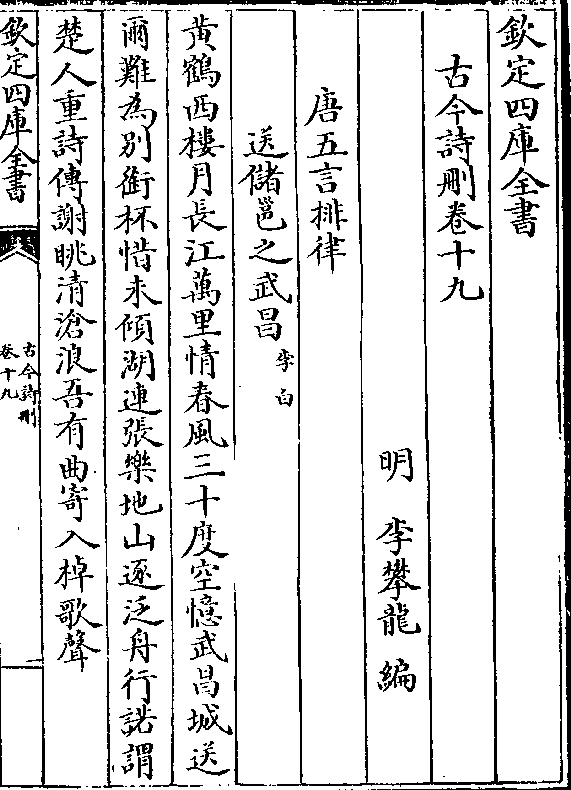 欽定四庫全書
古今詩刪卷十九
明 李攀龍 編
唐五言排律
送儲邕之武昌 李白
黄鶴西樓月長江萬里情春風三十度空憶武昌城送
爾難為别銜杯惜未傾湖連張樂地山逐泛舟行諾謂
楚人重詩傳謝眺清滄浪吾有曲寄入棹歌聲
欽定四庫全書
古今詩刪
卷十九